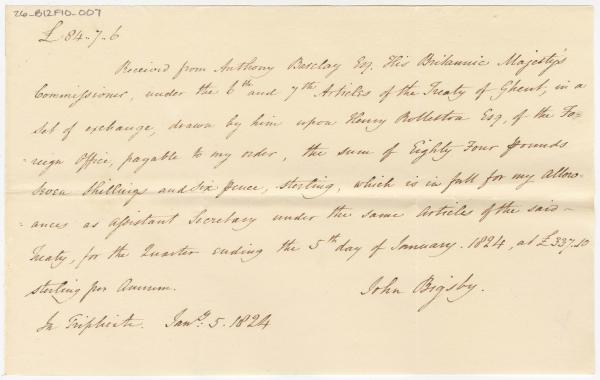 26-B12F10-007
£84-7-6
Received from Anthony Barclay Esq. His Britannic Majesty's
Commissioner, under the 6th and 7th Articles of the Treaty of Ghent, in a
set of exchange, drawn by him upon Henry Rolleston Esq, of the Fo-
reign Office, payable to my order, the sum of Eighty Four Pounds
Seven Shillings and Six Pence, sterling, which is in full for my Allow-
ances as Assistant Secretary under the same Articles of the said
Treaty, for the Quarter ending the 5th day of January. 1824, at £337.10
sterling per Annum.
John Bigsby.
In Triplicate. Jany. 5. 1824